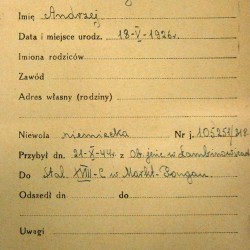 Imię Andrzej
Data i miejsce urodz. 18-V-1926r.
Imiona rodziców
Zawód
Adres własny (rodziny)
Niewola niemiecka Nr j. 105251/318
Przybył dn. 21-X-44r. z Ob. jenc. w Lambinowicach
Do Stal. XVIII-C w Markt-Pongau.
Odszedł dn. do
Uwagi